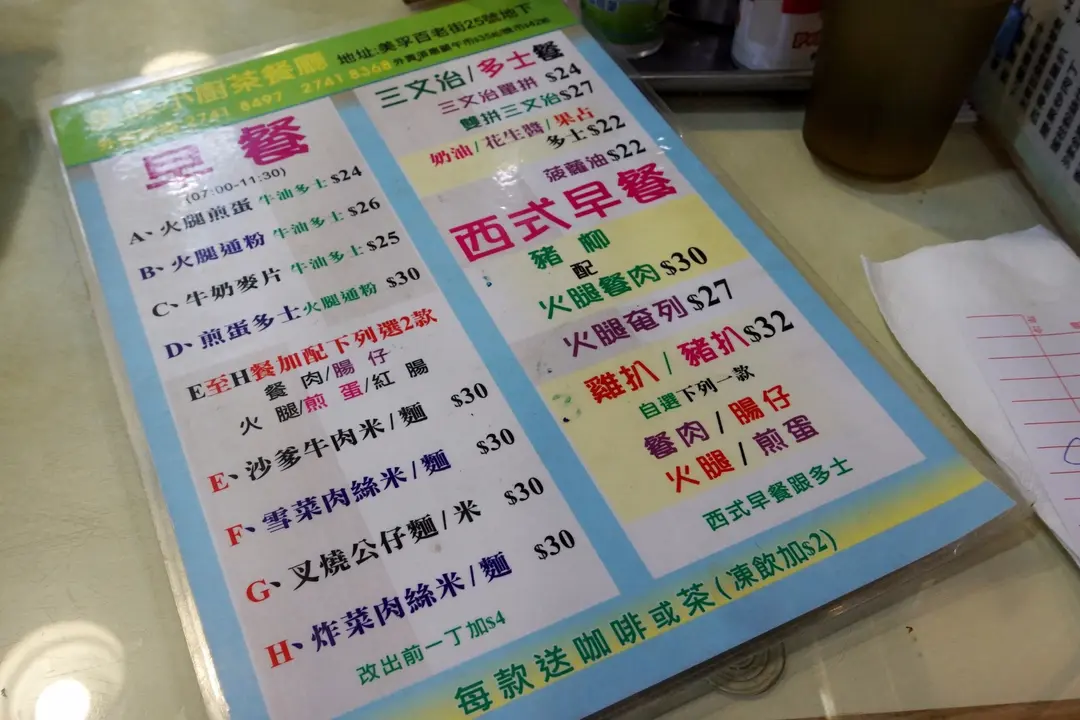 小廚茶餐廳 地址:美孚百老街25號地下
8497 2741 8368
早餐
(07:00-11:30)
A、火腿煎蛋 牛油多士 $24
B、火腿通粉 牛油多士 $26
C、牛奶麥片 牛油多士 $25
D、煎蛋多士火腿通粉 $30
E至H餐加配下列選2款
餐肉/腸仔
火腿/煎蛋/紅腸
E、沙爹牛肉米/麵 $30
F、雪菜肉絲米/麵 $30
G、叉燒公仔麵/米 $30
H、炸菜肉絲米/麵 $30
改出前一丁加$4
三文治/多士餐
三文治單拼 $24
雙拼三文治$27
奶油/花生醬/果占
多士$22
菠蘿油$22
西式早餐
豬柳
配
火腿餐肉$30
火腿奄列$27
雞扒/豬扒$32
自選下列一款
餐肉/腸仔
火腿/煎蛋
西式早餐跟多士
每款送咖啡或茶(凍飲加$2)